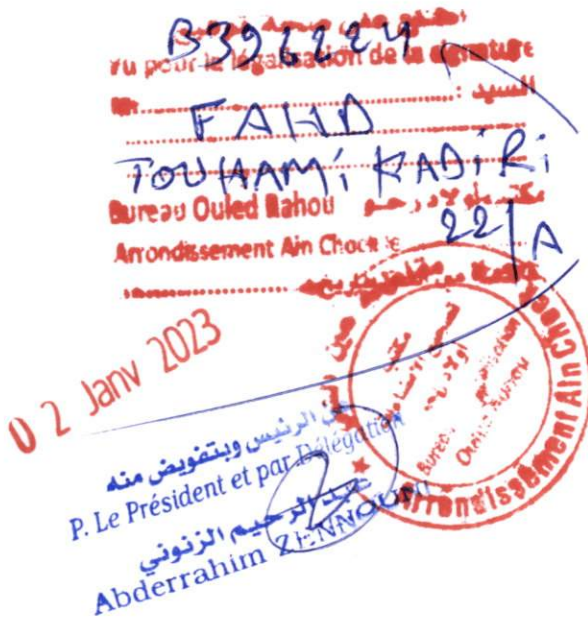 B392224
Vu pour la légalisation de la signature
السيد :
FAHD
TOUHAMI KADIRI
Bureau Ouled Rahou
Arrondissement Ain Chock le
22/A
02 Janv 2023
عن الرئيس وبتفويض منه
P. Le Président et par Délégation
عبد الرحيم الزنوني
Abderrahim ZENNOUNI
Arrondissement Ain Chock
Bureau